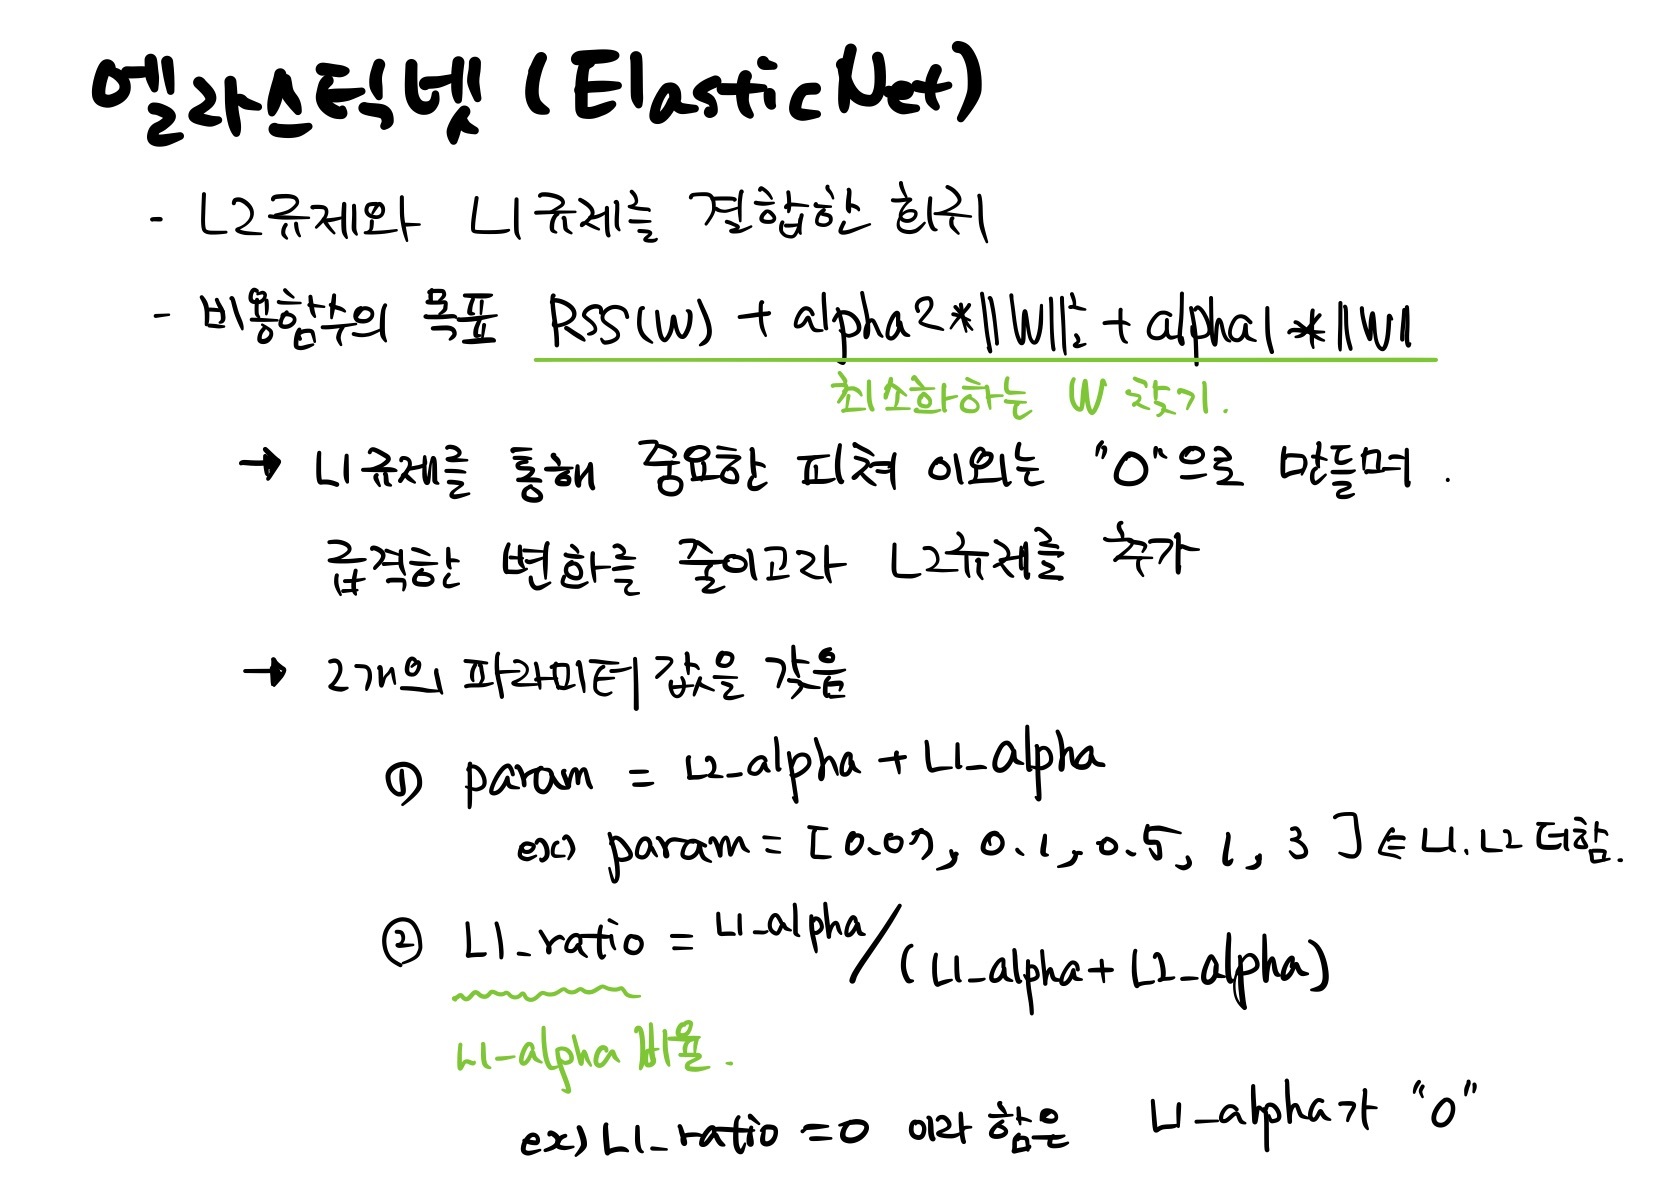 엘라스틱넷 (ElasticNet)
- L2규제와 L1규제를 결합한 회귀
- 비용함수의 목표 RSS(W) + alpha2*||W||²₂ + alpha1*||W||
최소화하는 W 찾기.
→ L1규제를 통해 중요한 피쳐 이외는 "0"으로 만들며.
급격한 변화를 줄이고라 L2규제를 추가
→ 2개의 파라미터 값을 갖음
① param = L2_alpha + L1_alpha
ex) param = [0.07, 0.1, 0.5, 1, 3] ← L1. L2 더함.
② L1_ratio = L1_alpha/(L1_alpha + L2_alpha)
L1-alpha 비율.
ex) L1_ratio = 0 이라 함은 L1_alpha가 "0"